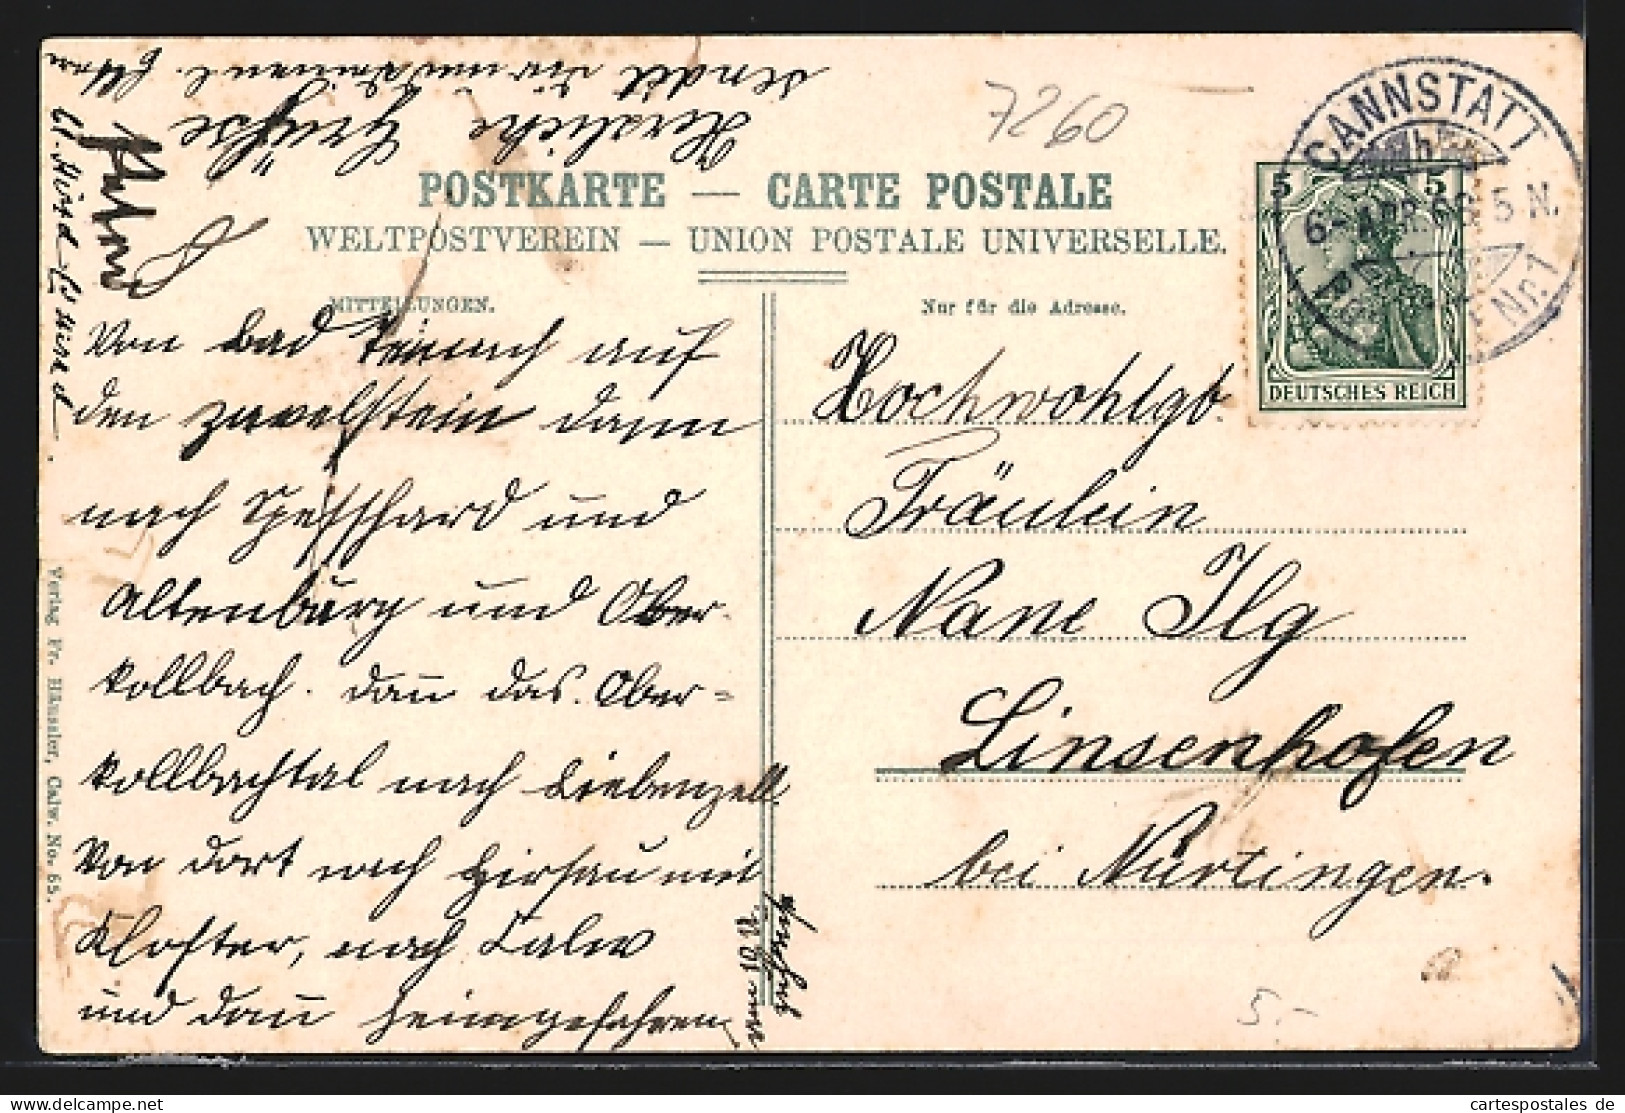 Herzliche Grüße
sendet Dir und deinen l. Eltern
7260
POSTKARTE — CARTE POSTALE
WELTPOSTVEREIN — UNION POSTALE UNIVERSELLE.
MITTEILUNGEN.
Nur für die Adresse.
CANNSTATT
6 APR. 5 N.
Nr. 1
5 5
DEUTSCHES REICH
Von bad Teinach auf
den zavelstein dann
nach Speßhard und
Altenburg und Ober-
kollbach. dann das Ober-
kollbachtal nach Liebenzell.
Von dort nach Hirsau mit
Kloster, nach Calw
und dann heimgefahren
um 10 12
Hochwohlgb.
Fräulein
Nane Ilg
Linsenhofen
bei Nürtingen.
5.-
Verlag Fr. Häussler, Calw. No. 65.
cartespostales de